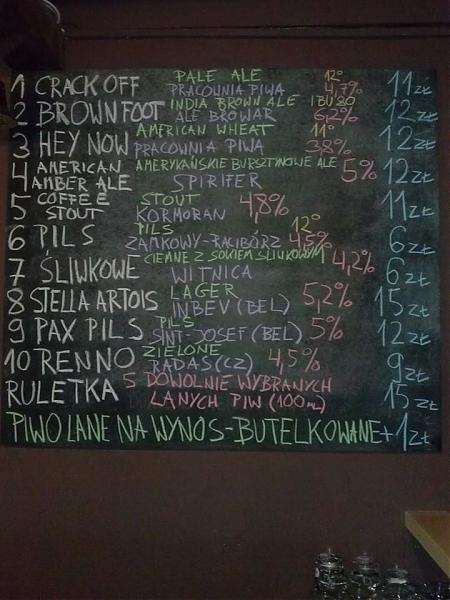 1 CRACK OFF PALE ALE 12° PRACOWNIA PIWA 4,7% 11 ZŁ
2 BROWN FOOT INDIA BROWN ALE IBU 80 ALE BROWAR 6,2% 12 ZŁ
3 HEY NOW AMERICAN WHEAT 11° PRACOWNIA PIWA 3,8% 12 ZŁ
4 AMERICAN AMBER ALE AMERYKAŃSKIE BURSZTYNOWE ALE SPIRIFER 5% 12 ZŁ
5 COFFEE STOUT STOUT KORMORAN 4,8% 11 ZŁ
6 PILS PILS 12° ZAMKOWY-RACIBÓRZ 4,5% 6 ZŁ
7 ŚLIWKOWE CIEMNE Z SOKIEM ŚLIWKOWYM WITNICA 4,2% 6 ZŁ
8 STELLA ARTOIS LAGER INBEV (BEL) 5,2% 15 ZŁ
9 PAX PILS PILS SINT-JOSEF (BEL) 5% 12 ZŁ
10 RENNO ZIELONE RADAS (CZ) 4,5% 9 ZŁ
RULETKA 5 DOWOLNIE WYBRANYCH LANYCH PIW (100ml) 15 ZŁ
PIWO LANE NA WYNOS-BUTELKOWANE +1 ZŁ